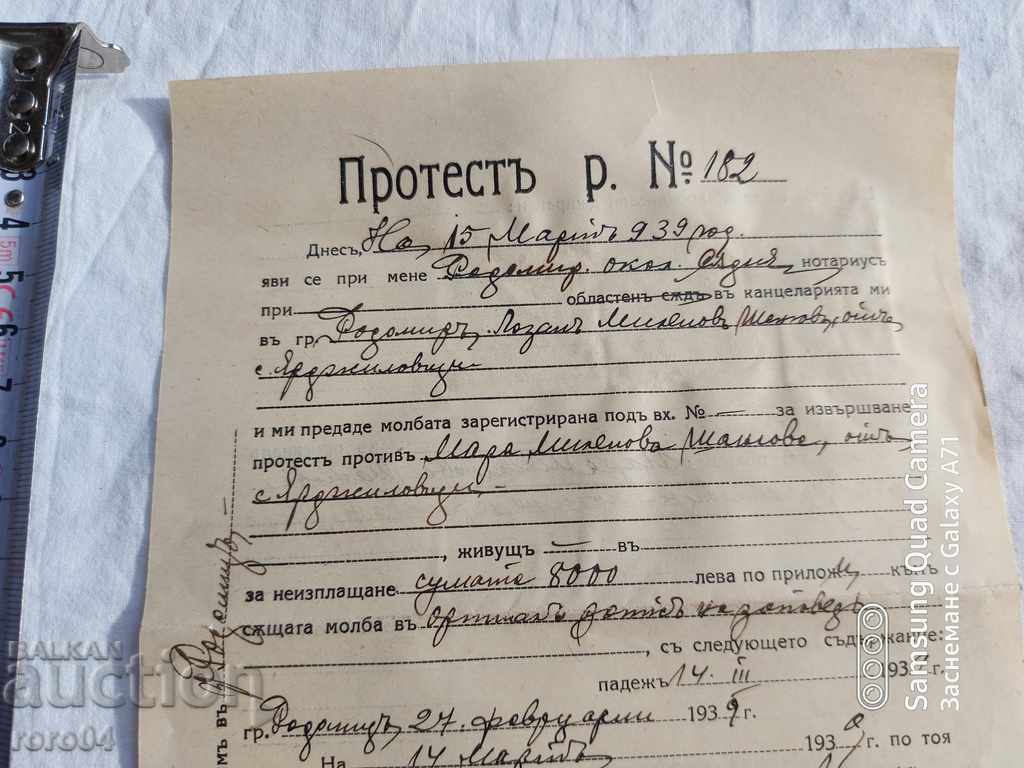 Протестъ р. № 182
Днесъ, На 15 Мартъ 939 год.
яви се при мене Радомир. окол. сѫдия, нотариусъ
при областенъ сѫдъ въ канцеларията ми
въ гр. Радомиръ, Лозанъ Миленовъ отъ
с. Ярджиловци
и ми предаде молбата зарегистрирана подъ вх. № — за извършване
протестъ противъ Мара Миленова отъ
с. Ярджиловци, —
, живущъ — въ
за неизплащане сумата 8000 лева по приложе къмъ
сѫщата молба въ на заповедь
, съ следующето съдържание:
падежъ 14 III 1939 г.
гр. Радомиръ, 27 февруарий 1939 г.
На 14 Мартъ 1939 г. по тоя
мъ въ гр. Радомиръ, —
BALKAN
auction
roro04
Samsung Quad Camera
Заснемане с Galaxy A71
3
4
5
6
7
5m